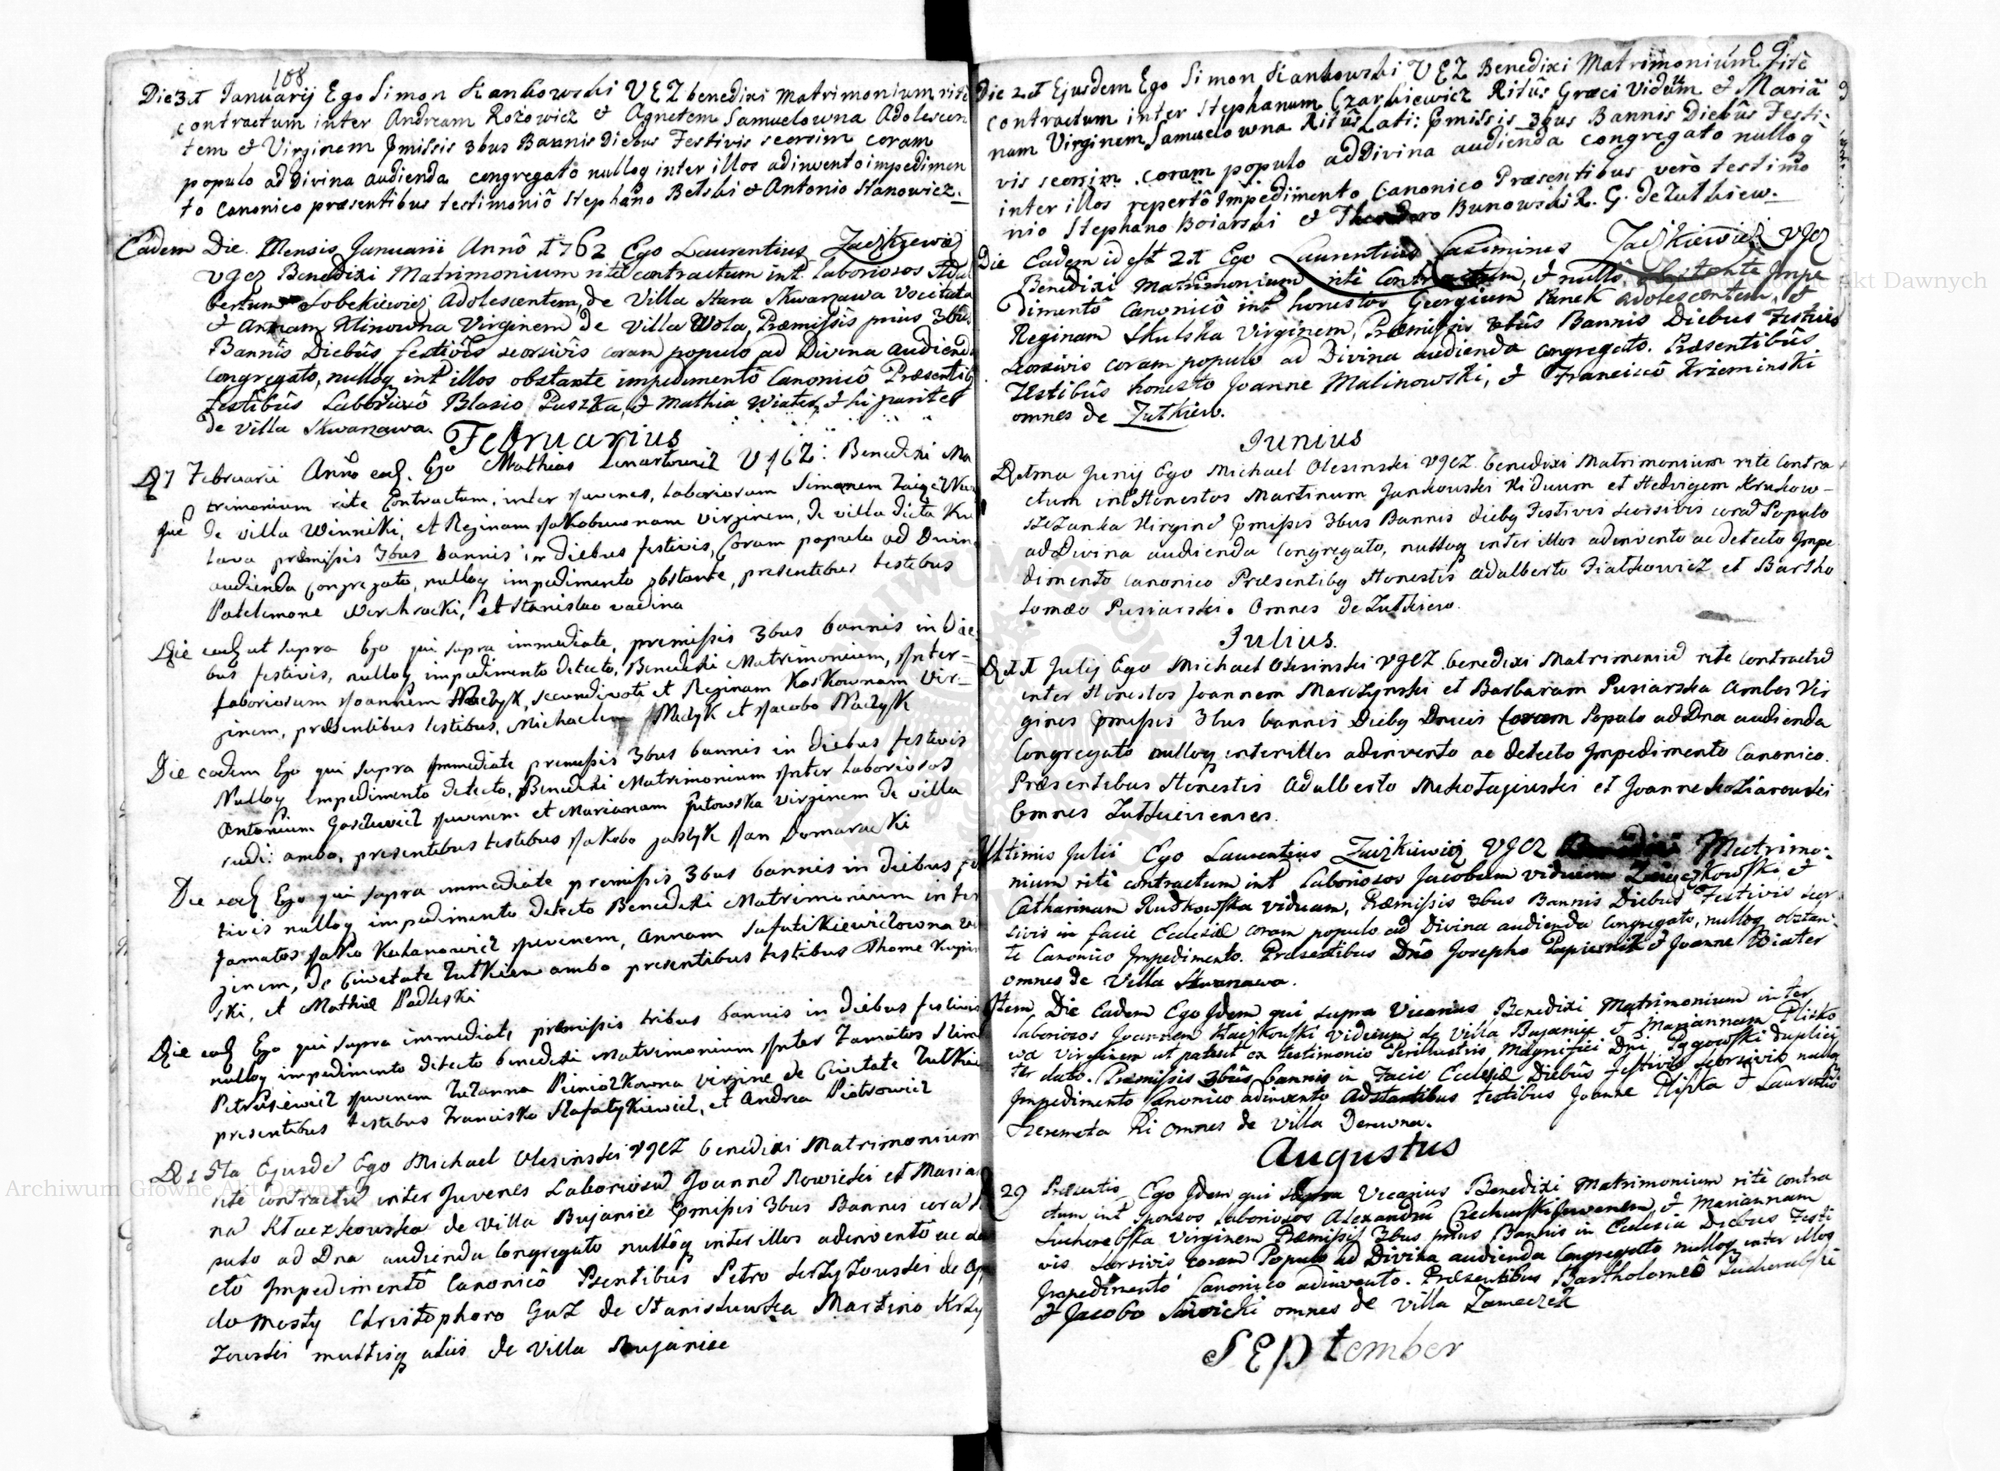 108
Die 31 Januarij Ego Simon Stankowski VEZ benedixi Matrimonium rite
contractum inter Andream Rozowicz et Agnetem Samuelowna Adolescen
tem et Virginem pmissis 3bus Bannis Diebus Festivis seorsim coram
populo ad Divina audienda congregato nulloq inter illos adinvento impedimen
to Canonico præsentibus testimoniô Stephano Belski et Antonio Stanowicz.
Eadem Die Mensis Januarii Annô 1762 Ego Laurentius
VGEZ Benedixi Matrimonium rite contractum int laboriosos Adal
bertum Sobekiewicz Adolescentem, de Villa Stara Skwarzawa Vocitata
et Annam Klinowna Virginem de Villa Wola, Præmissis prius 3bus
Bannis Diebûs festivîs seorsivîs coram populo ad Divina audienda
Congregato, nulloq int illos obstante impedimentô Canonicô Præsentib
testibûs Laboriosô Blasio Puszka, et Mathia Wiater, et
de villa Skwarzawa.
Februarius
D 7 Februarii Anno ead. Ego Mathias VGEZ: Benedixi Ma
trimonium rite Contractum, inter juvenes, laboriosum Simonem
que de villa Winniki, et Reginam Jakobuwnam virginem, de villa dicta Ku
lawa premissis 3bus bannis in diebus festivis, Coram populo ad Divina
audienda congregato, nulloq impedimento obstante, presentibus testibus
Patelimone Werchracki, et Stanislao
Die ead ut supra Ego qui supra immediate, premissis 3bus bannis in Die
bus festivis, nulloq impedimento detecto, Benedixi Matrimonium, Inter
laboriosum Joannem secundivoti et Reginam Koskownam Vir=
ginem, presentibus testibus, Michaele et Jacobo
Die eadem Ego qui supra immediate premissis 3bus bannis in diebus festivis
Nulloq impedimento detecto, Benedixi Matrimonium Inter laboriosos
Antonium juvenem et Mariannam Gutowska virginem de villa
rudi: ambo, presentibus testibus Jakobo Jan Domaracki
Die ead Ego qui supra immediate premissis 3bus bannis in diebus fes
tivis nulloq impedimento detecto Benedixi Matrimonium inter
famatos Jako Kahanowicz juvenem, Annam vir
ginem, de Civetate Zutkiew ambo presentibus testibus Thome
ski, et Mathiæ Padleski
Die ead Ego qui supra immediat, premissis tribus bannis in diebus festivis
nulloq impedimento ditecto benedixi Matrimonium Inter famatos
juvenem Zuzanna virgine de Civetate Zutkiew
presentibus testibus Francisko et Andrea Piotrowicz
D 15ta Ejusdē Ego Michael Olesinski VGEZ benedixi Matrimonium
rite contractū inter Juvenes Laboriosū Joannē Nowicki et Maria
na de Villa Bujanice pmissis 3bus Bannis cora Po
pulo ad Dna audienda Congregato nullôq inter illos adinventô ac de
ctô Impedimentô Canonicô Psentibus Petro de
do Mosty Christophoro Guz de Stanislowka Martino
multisq aliis de Villa Bujanice
Die 21 Ejusdem Ego Simon Stankowski VEZ Benedixi Matrimonium rite
contractum inter Stephanum Czarkiewicz Ritûs Græci Viduũ et Mariã
nam Virginem Samuelowna Ritûs Lati: pmissis 3bus Bannis Diebûs Festi
vis seorsim coram populo ad Divina audienda congregato nulloq
inter illos repertô Impedimento Canonico Præsentibus verò testimo
nio Stephano Boiarski et Theodoro Bunowski R. G. de Zutkiew.
Die Eadem id est 21 Ego Laurentius Casiminus Zaczkiewicz VGEZ
Benedixi Matrimonium ritè Contractum, et nullô obstante Impe
dimentô Canonicô int honestos Georgium Panek Adolescentem, et
Reginam Skulska Virginem, Præmissis 3bûs Bannis Diebus Festivis
seorsivis coram populo ad Divina audienda congregato. Præsentibûs
Testibûs honesto Joanne Malinowski, et Franciscô Krzeminski
omnes de Zutkiew.
Junius
D 1ma Junij Ego Michael Olesinski VGEZ benedixi Matrimonium rite contra
ctum int Honestos Martinum Jankowski Viduum et Hedvigem Krukow-
Virginē pmissis 3bus Bannis dieby Festivis seorsivis corā Populo
ad Divina audienda Congregato, nulloq inter illos adinvento ac detecto Impe
dimento Canonico Præsentiby Honestis Adalberto Fiatkowicz et Bartho
lomæo Pusiarski. Omnes de Zutkiew.
Julius.
D 11 Julij Ego Michael Olesinski VGEZ benedixi Matrimoniū rite contractū
inter Honestos Joannem Marczynski et Barbaram Pusiarska Ambos Vir
gines pmissis 3bus bannis Dieby Dnicis Coram Populo ad Dna audienda
Congregato nulloq inter illos adinvento ac detecto Impedimento Canonico.
Præsentibus Honestis Adalberto et Joanne Koztarowski
Omnes Zutkievienses.
Ultimis Julii Ego Laurentius Zaczkiewicz VGEZ Benedixi Matrimo-
nium ritè contractum int Laboriosos Jacobum viduum et
Catharinam Rudkowska viduam, Præmissis 3bus Bannis Diebus Festivis seor
sivis in facie Ecclesiæ coram populo ad Divina audienda Congregato, nulloq obstan-
te Canonico Impedimento. Præsentibus Dño Josepho Papiernik et Joanne Wiater
omnes de Villa Skwarzawa.
Item, Die Eadem Ego Idem qui supra Vicarius Benedixi Matrimonium inter
laboriosos Joannem Kłaczkowski Viduum de Villa Bujanice et Mariannam Plisko
wa Virginem ut patuit ex testimonio Perillustris Magnifici Dni duplici
ter dato. Præmissis 3bûs bannis in Facie Ecclesiæ Diebûs festivis seorsivis nulloq
Impedimento Canonico adinvento Adstantibus testibus Joanne Pliska et Laurentiô
Szeremeta hi omnes de Villa Derewna.
Augustus
29 Præsentis Ego Idem qui supra Vicarius Benedixi Matrimonium ritè contra
ctum int Sponsos laboriosos Alexandrũ juvenem, et Mariannam
Virginem Præmissis 3bus prius Bannis in Ecclesia Diebus Festi
vis seorsivis coram Populo ad Divina audienda Congregato nulloq inter illos
Impedimentô Canonico adinvento. Præsentibus Bartholomeô
et Jacobo Sawicki omnes de Villa Zameczek
September
Archiwum Główne Akt Dawnych